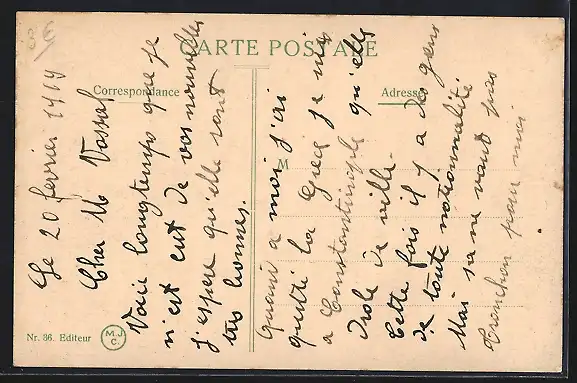 CARTE POSTALE
Correspondance
Adresse
M
Nr. 36. Editeur
M.J.C.
Le 20 fevrier 1919
Cher M Vassal
Voici longtemps que je
n'est eut de vos nouvelles
j'espere qu'elle sont
tres bonnes.
Quant a moi j'ai
quitté la Grec je suis
a Constantinople qu'elle
drole de ville.
Cette fois il y a des gens
de toute nationnalité
Mai sa ne vaut pas
Tronchon pour moi